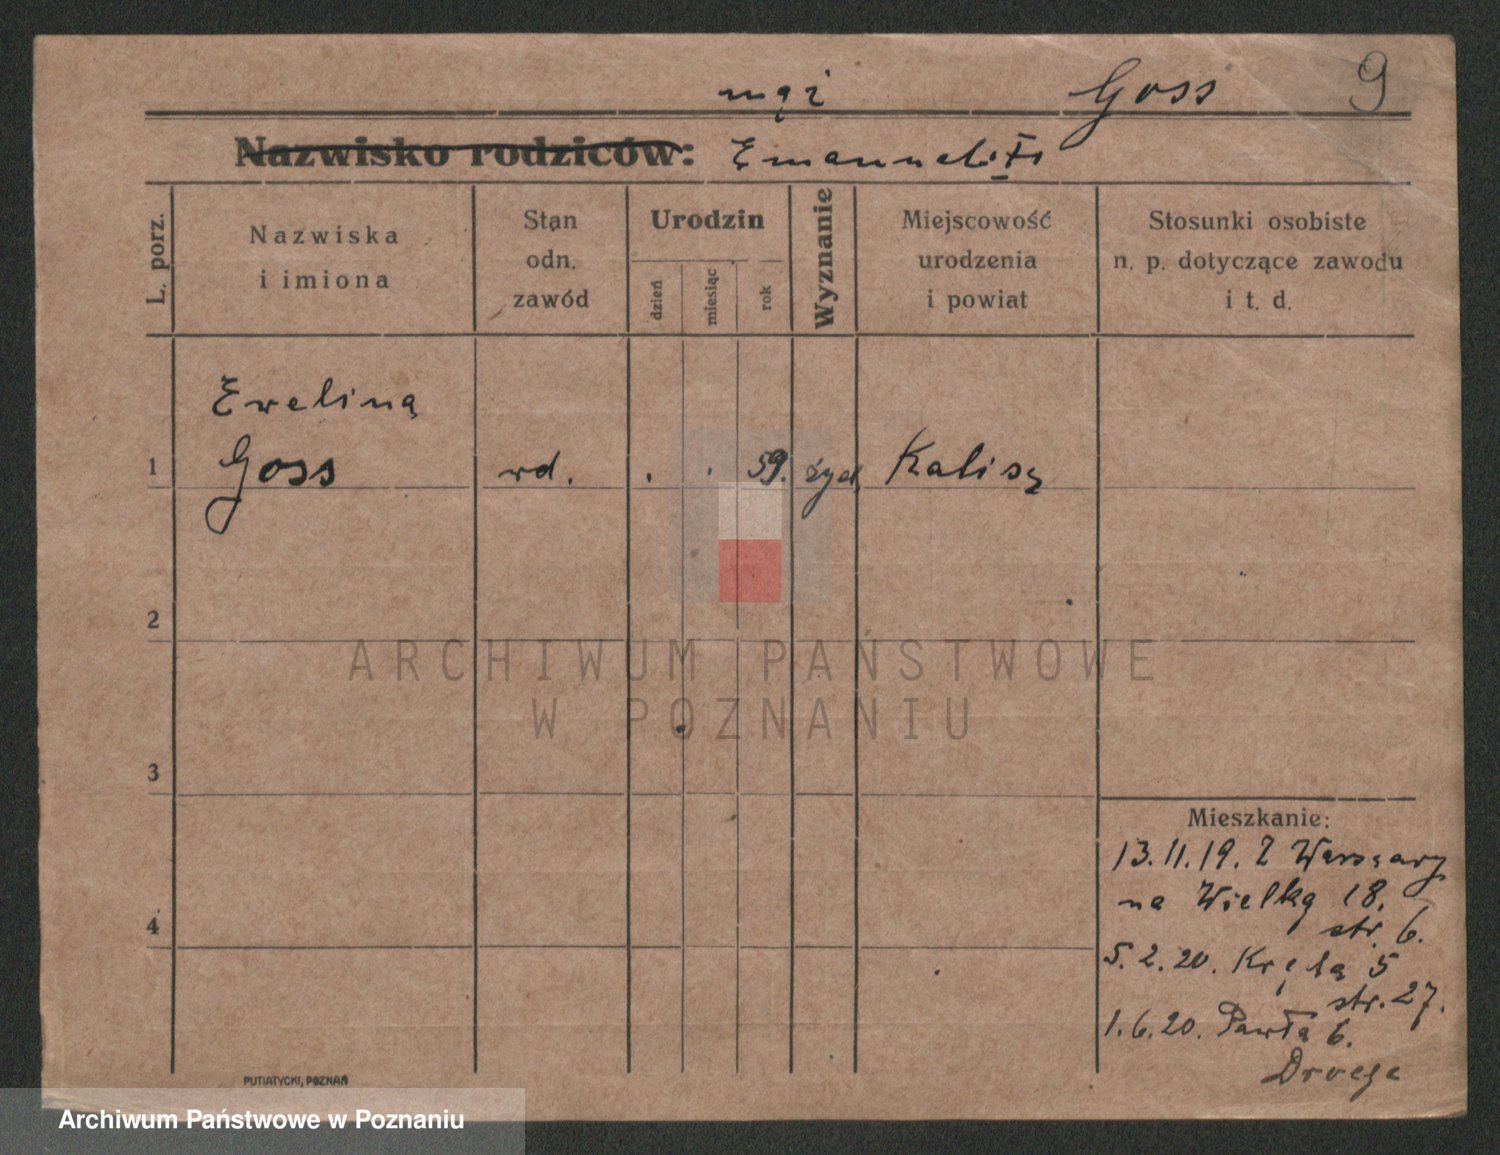 mąż Goss 9
Nazwisko rodziców: Emanuel
L. porz.
Nazwiska
i imiona
Stan
odn.
zawód
Urodzin
dzień
miesiąc
rok
Wyznanie
Miejscowość
urodzenia
i powiat
Stosunki osobiste
n. p. dotyczące zawodu
i t. d.
Ewelina
1 Goss wd. . . 59. żyd. Kalisz
2
3
4
Mieszkanie:
13.11.19. Z Warszawy
na Wielką 18.
str. 6.
5.2.20. Kręta 5
str. 27.
1.6.20. Pawła 6.
Droege
PUTIATYCKI, POZNAŃ
ARCHIWUM PAŃSTWOWE
W POZNANIU
Archiwum Państwowe w Poznaniu